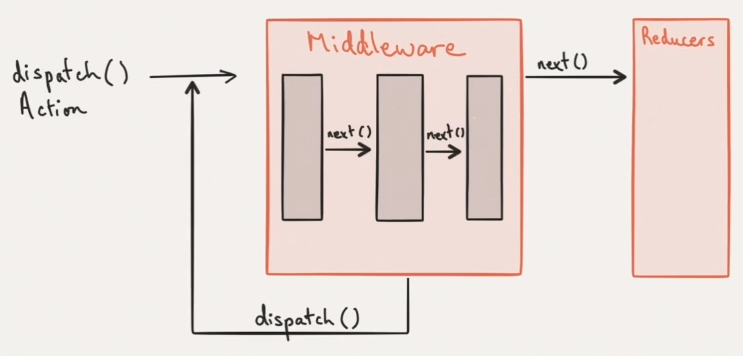 dispatch()
Action
Middleware
next()
next()
next()
Reducers
dispatch()